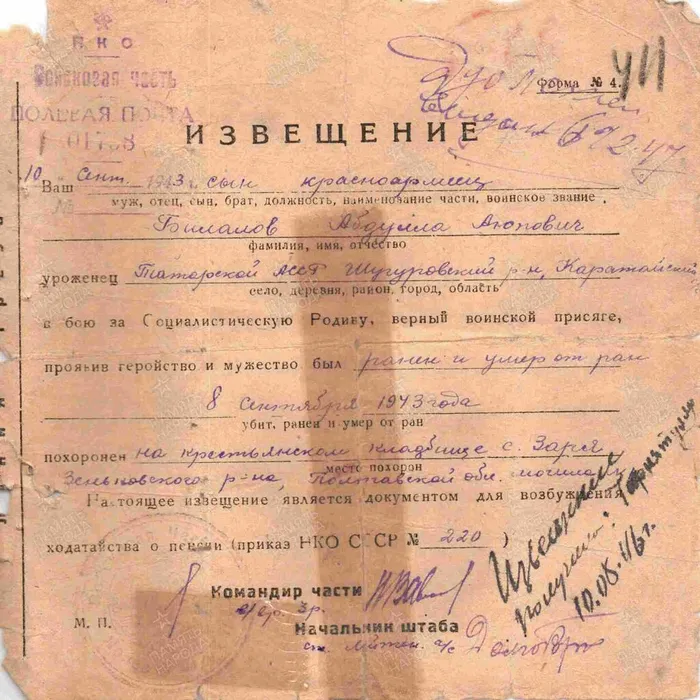 НКО
Войсковая часть
ПОЛЕВАЯ ПОЧТА
Форма № 4.
ИЗВЕЩЕНИЕ
10 сент. 1943 г.
Ваш сын красноармеец
муж, отец, сын, брат, должность, наименование части, воинское звание.
Билалов Абдулла Аюпович
фамилия, имя, отчество
уроженец Татарской АССР Шугуровский р-н, Каратайский
село, деревня, район, город, область
в бою за Социалистическую Родину, верный воинской присяге,
проявив геройство и мужество был ранен и умер от ран
8 сентября 1943 года
убит, ранен и умер от ран
похоронен на крестьянском кладбище с. Заря
место похорон
Зеньковского р-на, Полтавской обл.
Настоящее извещение является документом для возбуждения
ходатайства о пенсии (приказ НКО СССР № 220)
Командир части
М. П.
Начальник штаба
Извещение
получил:
10.08.46г.